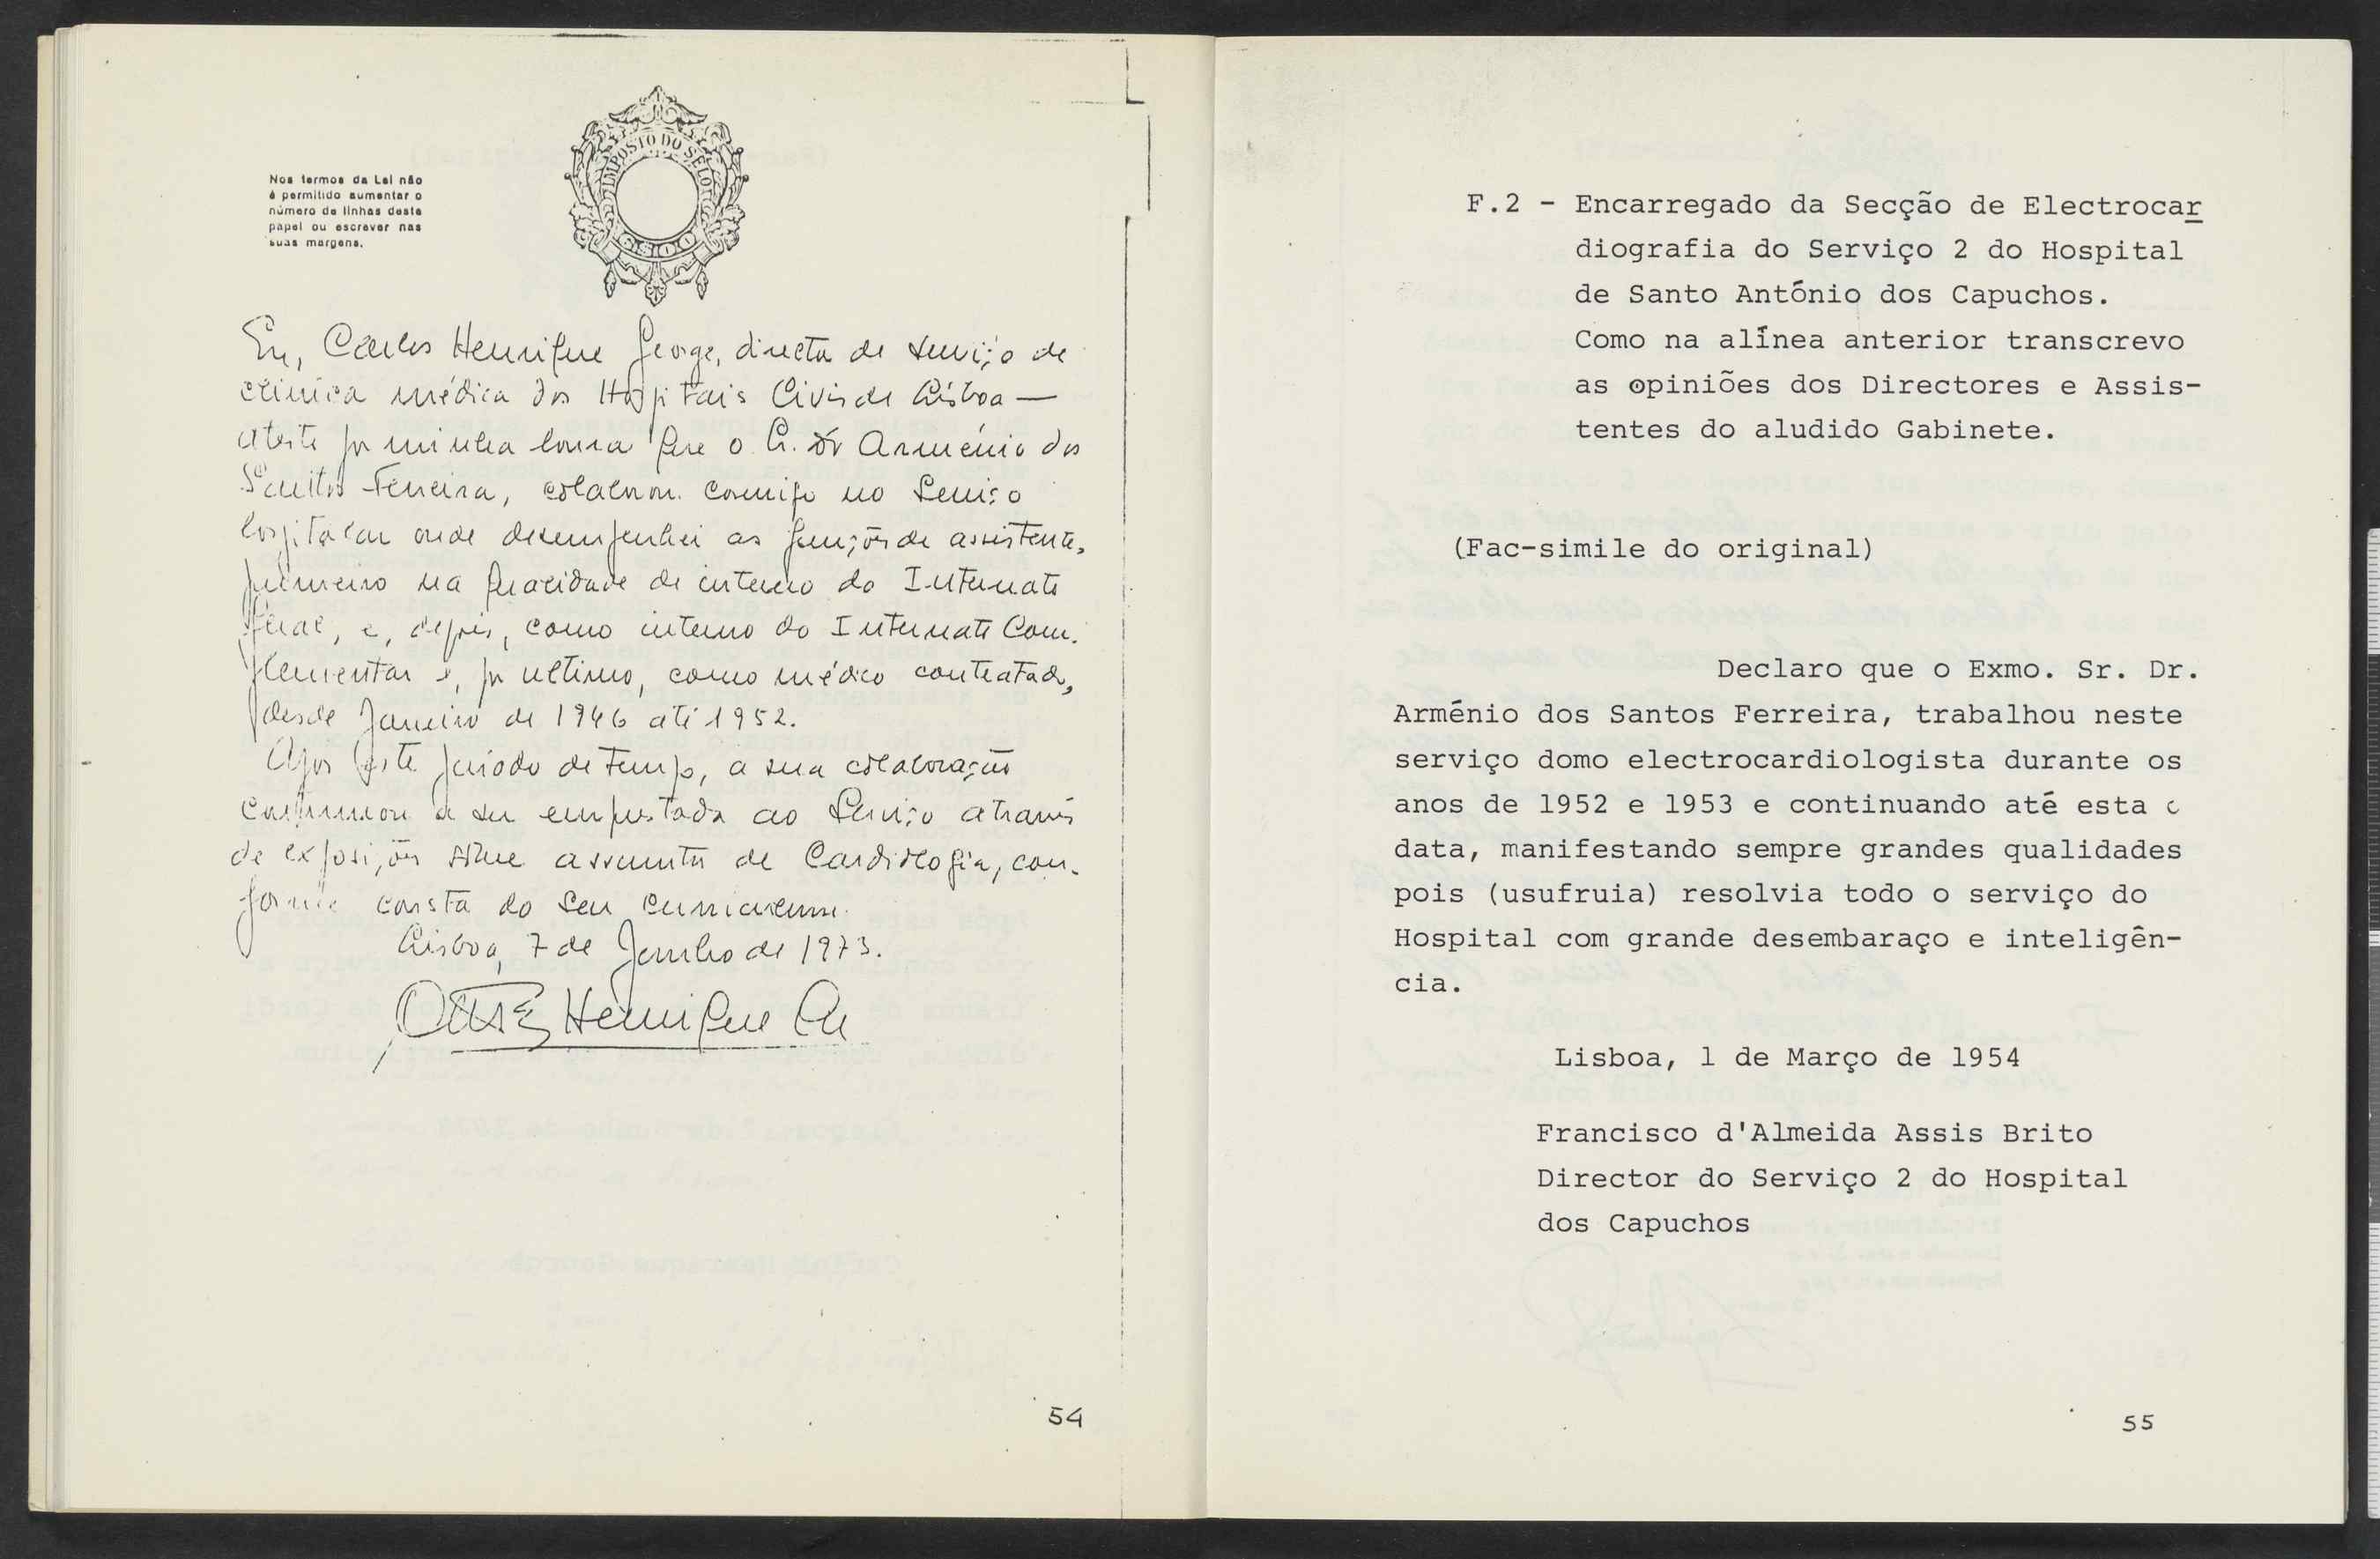 Nos termos da Lei não
é permitido aumentar o
número de linhas deste
papel ou escrever nas
suas margens.
IMPOSTO DO SELO
6$00
Eu, Carlos Henrique George, director de serviço de
clinica médica dos Hospitais Civis de Lisboa —
atesto por minha honra que o Sr. Dr Arménio dos
Santos Ferreira, colaborou comigo no Serviço
hospitalar onde desempenhei as funções de assistente,
primeiro na qualidade de interno do Internato
Geral, e, depois, como interno do Internato Com-
plementar e, por ultimo, como médico contratado,
desde Janeiro de 1946 até 1952.
Apos este periodo de tempo, a sua colaboração
continuou a ser emprestada ao Serviço através
de exposições sobre assuntos de Cardiologia, con-
forme consta do seu curriculum.
Lisboa, 7 de Junho de 1973.
Henrique
54
F.2 - Encarregado da Secção de Electrocar
diografia do Serviço 2 do Hospital
de Santo António dos Capuchos.
Como na alínea anterior transcrevo
as opiniões dos Directores e Assis-
tentes do aludido Gabinete.
(Fac-simile do original)
Declaro que o Exmo. Sr. Dr.
Arménio dos Santos Ferreira, trabalhou neste
serviço domo electrocardiologista durante os
anos de 1952 e 1953 e continuando até esta c
data, manifestando sempre grandes qualidades
pois (usufruia) resolvia todo o serviço do
Hospital com grande desembaraço e inteligên-
cia.
Lisboa, 1 de Março de 1954
Francisco d'Almeida Assis Brito
Director do Serviço 2 do Hospital
dos Capuchos
55